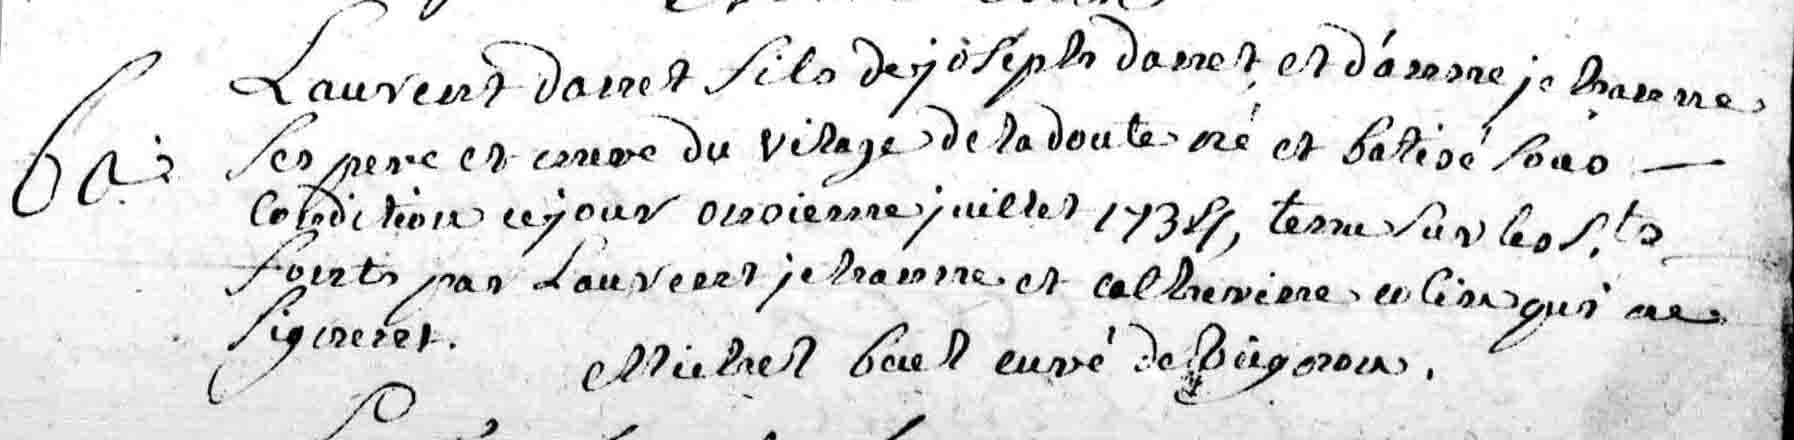 Laurent danet fils de joseph danet et d'anne jehanne
ses pere et mere du vilage de la doute né et batisé sous —
Condition ce jour onzieme juillet 1735, tenu sur les S.ts
fonts par Laurent jehanne et catherine colin qui ne
signent.
Michel bouel curé de Bignon.